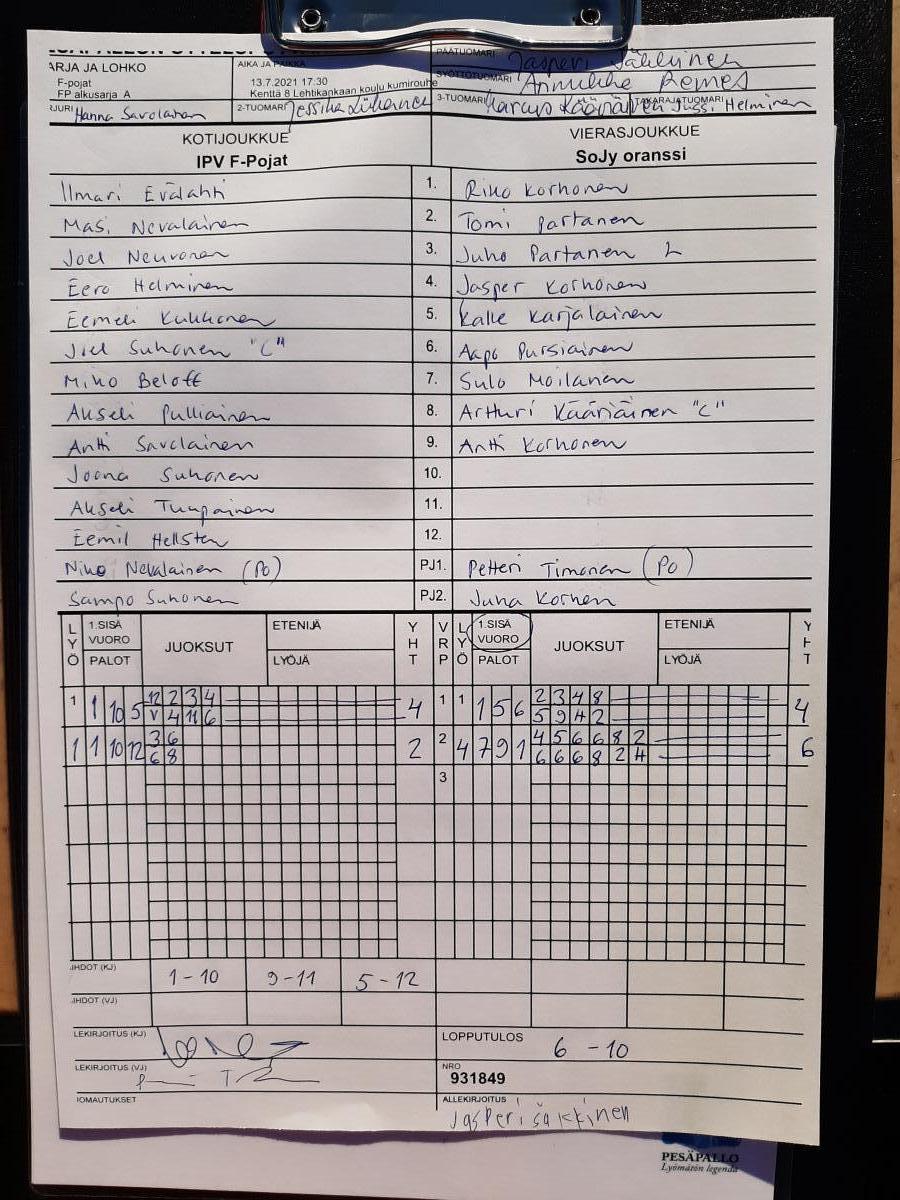 PÄÄTUOMARI
ARJA JA LOHKO
AIKA JA PAIKKA
F-pojat
13.7.2021 17:30
SYÖTTÖTUOMARI Annukka Remes
FP alkusarja A
Kenttä 8 Lehtikankaan koulu kumirouhe
JURI Hanna Savolainen
2-TUOMARI Jessika
3-TUOMARI
TAKARAJATUOMARI Jussi Helminen
KOTIJOUKKUE
VIERASJOUKKUE
IPV F-Pojat
SoJy oranssi
Ilmari Evälahti 1. Riko Korhonen
Masi Nevalainen 2. Tomi Partanen
Joel Neuvonen 3. Juho Partanen L
Eero Helminen 4. Jasper Korhonen
Eemeli Kukkonen 5. Kalle Karjalainen
Joel Suhonen "C" 6. Aapo Pursiainen
Miko Beloff 7. Sulo Moilanen
Akseli Pulliainen 8. Artturi Kääriäinen "C"
Antti Savolainen 9. Antti Korhonen
Joona Suhonen 10.
Akseli Tuupainen 11.
Eemil Hellsten 12.
Niko Nevalainen (PO) PJ1. Petteri Timonen (PO)
Sampo Suhonen PJ2. Juha Korhen
LYÖ 1.SISÄ VUORO JUOKSUT ETENIJÄ YHT VRP LYÖ 1.SISÄ VUORO JUOKSUT ETENIJÄ YHT
PALOT LYÖJÄ PALOT LYÖJÄ
1 1 10 5 12 2 3 4 4 1 1 1 5 6 2 3 4 8 4
V 4 11 6 5 9 4 2
1 1 10 12 3 6 2 2 4 7 9 1 4 5 6 6 8 2 6
6 8 6 6 6 8 2 4
3
IHDOT (KJ) 1-10 9-11 5-12
IHDOT (VJ)
LEKIRJOITUS (KJ)
LOPPUTULOS 6 - 10
LEKIRJOITUS (VJ)
NRO
931849
IOMAUTUKSET
ALLEKIRJOITUS
Jasperi Säkkinen
PESÄPALLO
Lyömätön legenda